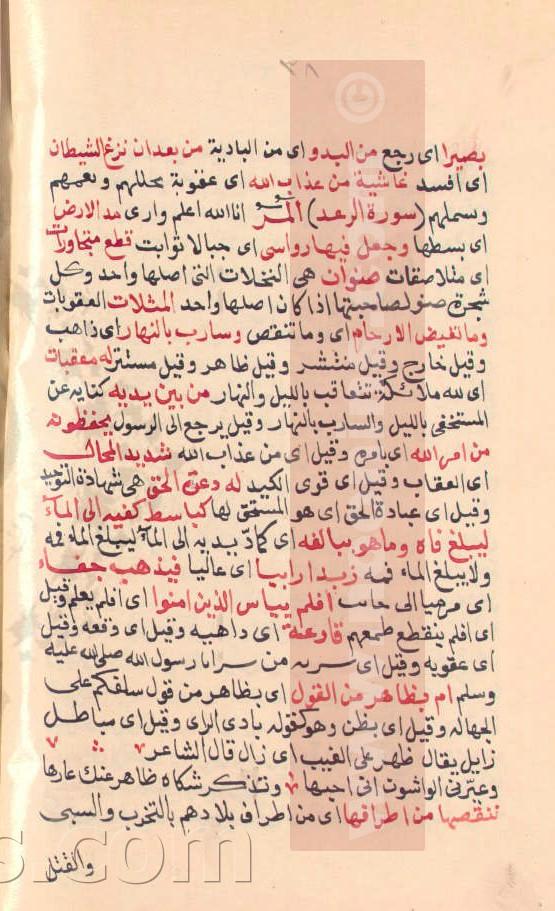 ٣٨
بصيرا اى رجع من البدو اى من البادية من بعد ان نزغ الشيطان
اى افسد غاشية من عذاب الله اى عقوبة تجللهم وتعمهم
وسملهم (سورة الرعد) المر انا الله اعلم وارى مد الارض
اى بسطها وجعل فيها رواسى اى جبالا ثوابت قطع متجاورات
اى متلاصقات صنوان هى النخلات التى اصلها واحد وكل
شجرة صنو لصاحبتها اذا كان اصلها واحد المثلات العقوبات
وما تغيض الارحام اى وما تنقص وسارب بالنهار اى ذاهب
وقيل خارج وقيل منتشر وقيل ظاهر وقيل مستتر له معقبات
اى لله ملائكة تتعاقب بالليل والنهار من بين يديه كناية عن
المستخفى بالليل والسارب بالنهار وقيل يرجع الى الرسول يحفظونه
من امر الله اى بامره وقيل اى من عذاب الله شديد المحال
اى العقاب وقيل اى قوى الكيد له دعوة الحق هى شهادة التوحيد
وقيل اى عبادة الحق اى هو المستحق لها كباسط كفيه الى الماء
ليبلغ فاه وما هو ببالغه اى كمادّ يديه الى الماء ليبلغ الماء فمه
ولا يبلغ الماء فمه زبدا رابيا اى عاليا فيذهب جفاء
اى مرميا الى جانب افلم ييأس الذين امنوا اى افلم يعلم وقيل
اى افلم ينقطع طمعهم قارعة اى داهية وقيل اى وقعه وقيل
اى عقوبه وقيل اى سريه من سرايا رسول الله صلى الله عليه
وسلم ام بظاهر من القول اى بظاهر من قول سلفكم على
الجهاله وقيل اى بظن وهو كقوله بادى الراى وقيل اى مباطل
زايل يقال ظهر على الغيب اى زال قال الشاعر
وعيّرنى الواشون انى احبها وتذكر شكاه ظاهر عنك عارها
ننقصها من اطرافها اى من اطراف بلادهم بالتخرب والسبى
والقتل
s.com